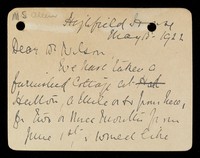 Highfield House
May 15. 1922
Dear Dr Wilson
We have taken a
furnished Cottage at
Hutton, a mile or so from here,
for two or three months from
June 1st & would like